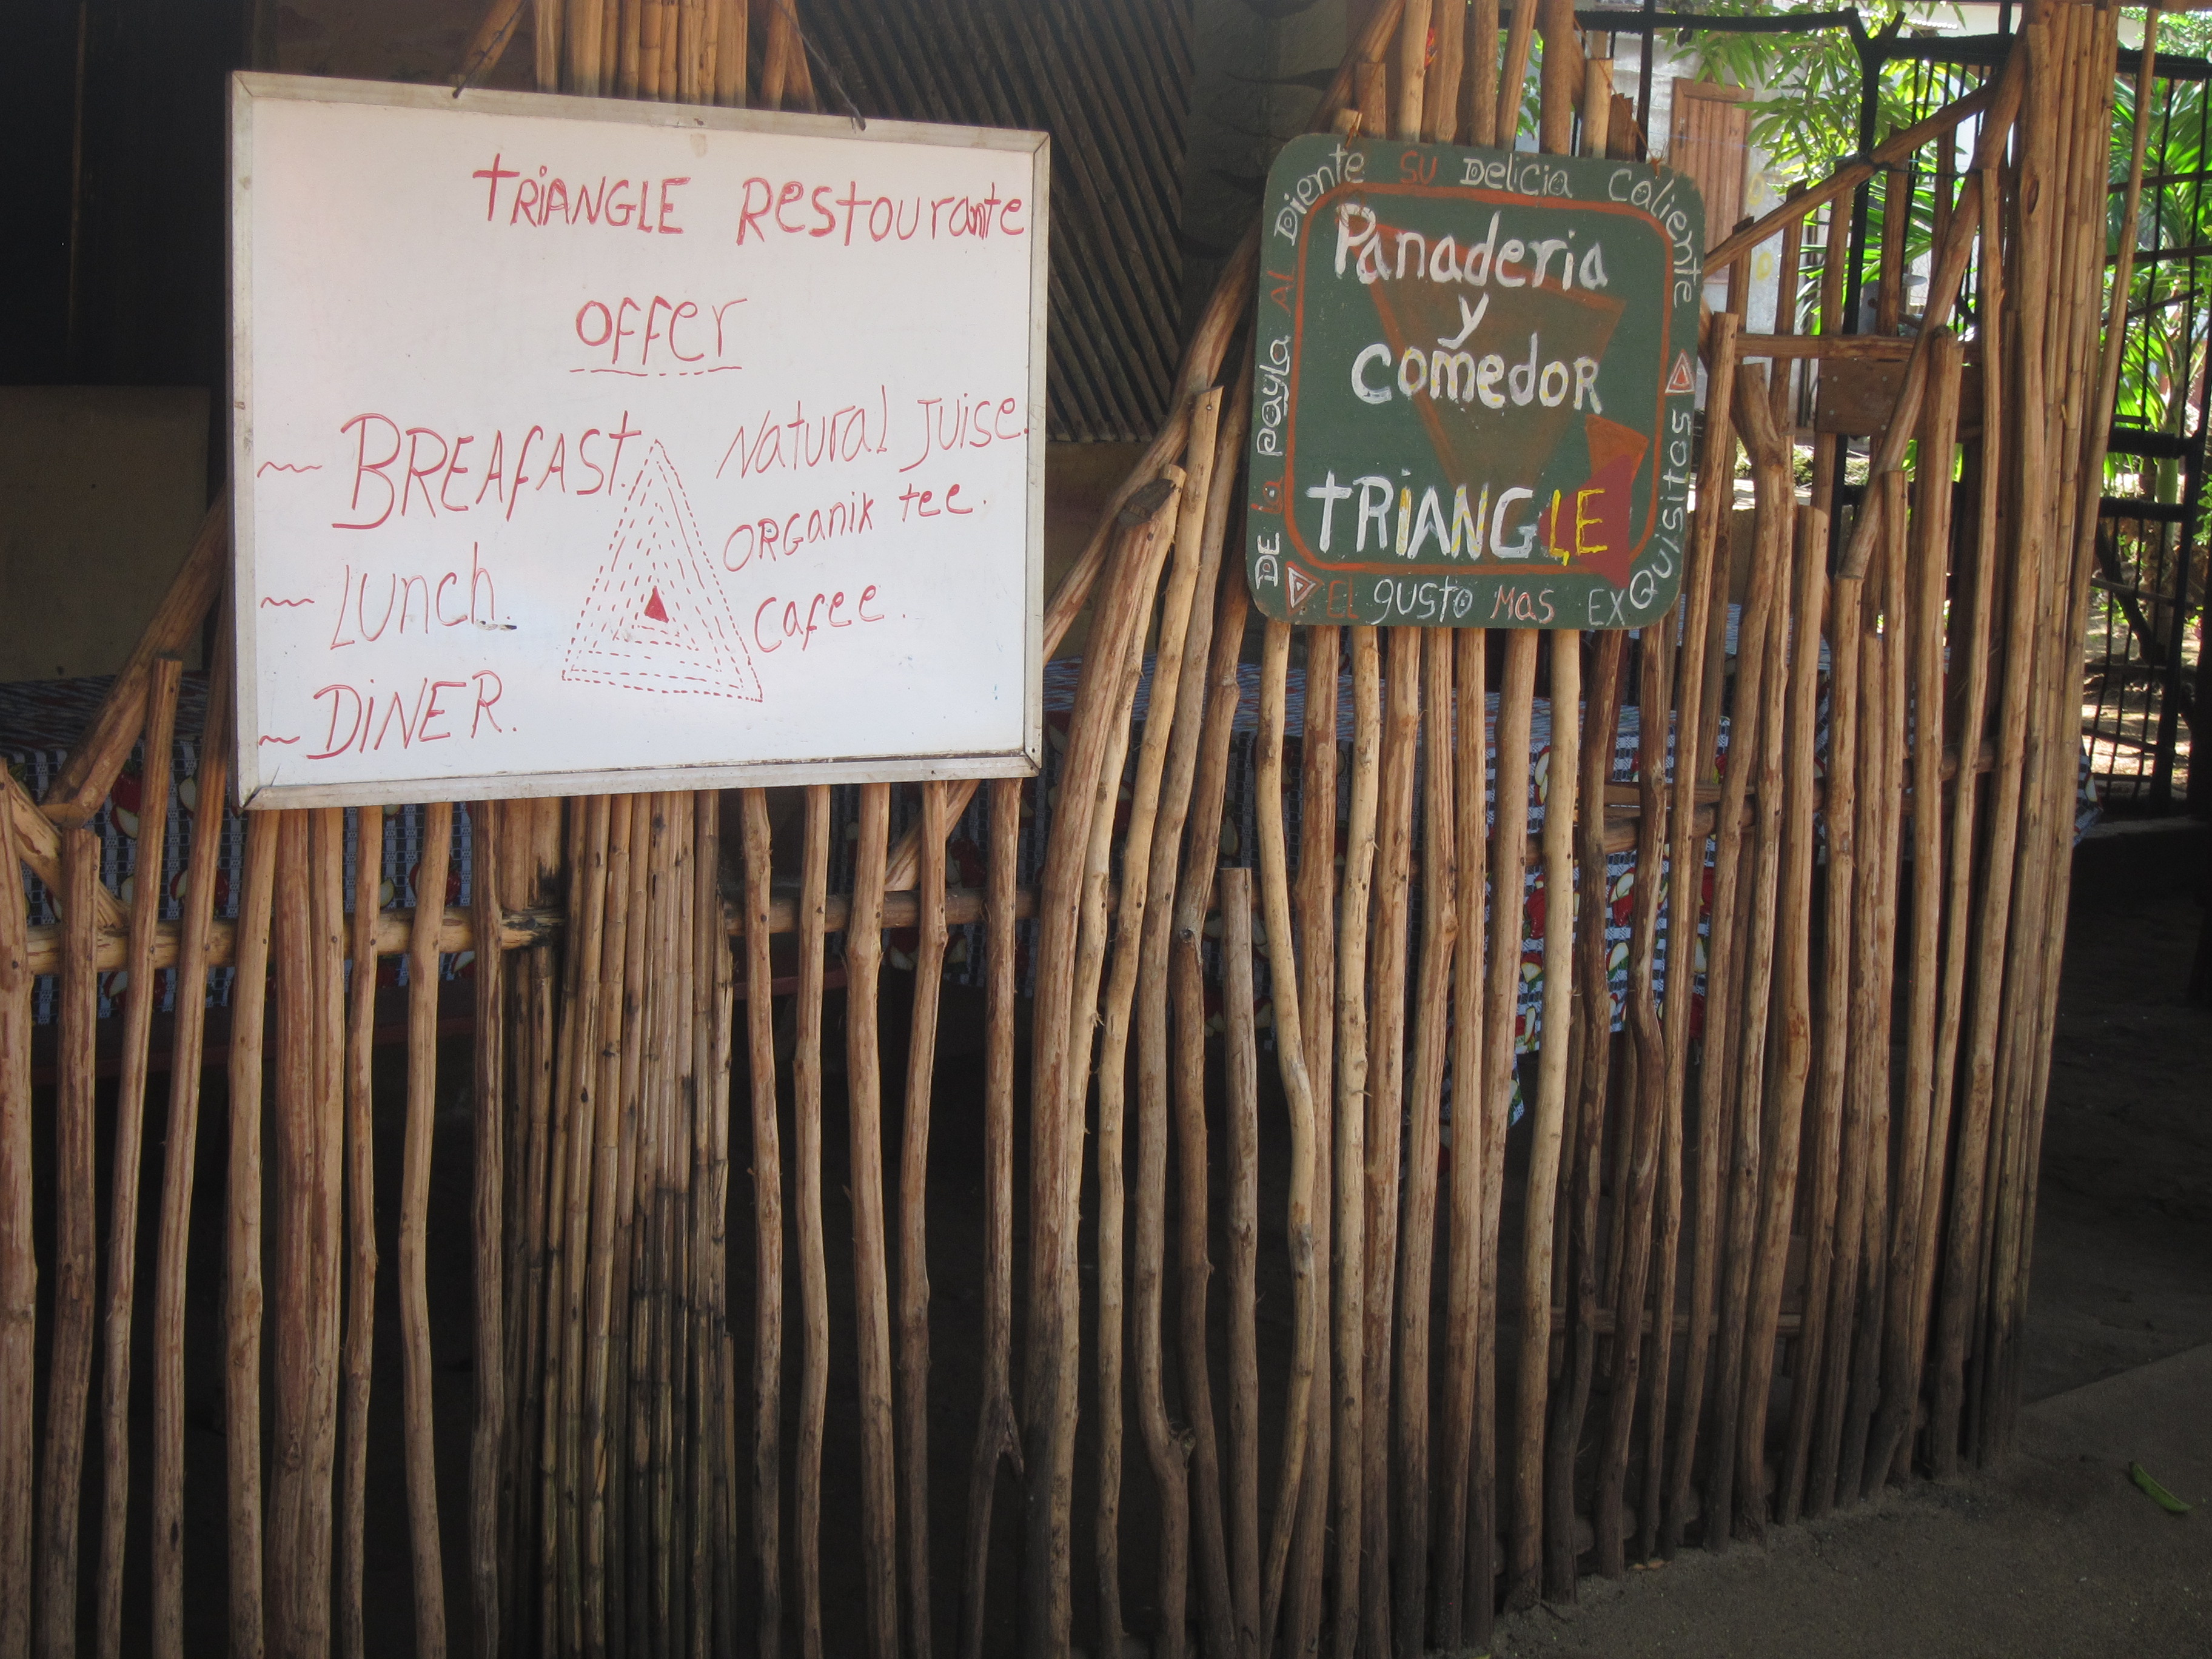 tRiANGLE REstourante
OFFer
~ BREAfASt.
~ LUnch.
~ DiNER.
Natural Juise.
ORGanik tee.
Cafee.
DE la payla AL Diente SU Delicia Caliente
Panaderia
y
comedoR
tRiANGLE
EL gusto Mas EXQuisitos